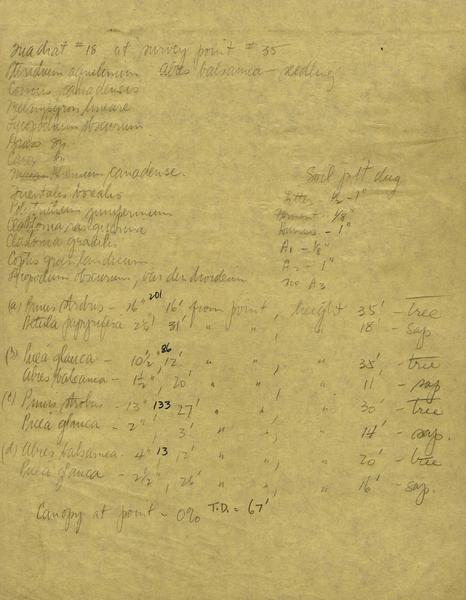 Quadrat #18 at survey point #35
Pteridium aquilinum Abies balsamea - seedling
Cornus canadensis
Melampyrum lineare
Lycopodium obscurum
Grass sp
Carex sp
Maianthemum canadense. Soil pit dug
Trientalis borealis Litter ½ - 1"
Polytrichum juniperinum Ferment 1/8"
Cladonia rangiferina Humus - 1"
Cladonia gracilis A1 - 1/8"
Coptis groenlandicum A2 - 1"
Lycopodium obscurum, var. dendroideum no A3
(a) Pinus strobus - 16" 201 16' from point, height 35' - tree
Betula papyrifera 2½' 31' " " , " 18' sap
(b) Picea glauca - 10½" 86 12' " " , " 35' tree
Abies balsamea - 1½", 20' " " , " 11' - sap
(c) Pinus strobus - 13" 133 27' " " , " 30' - tree
Picea glauca - 2", 3' " " , " 14' - sap.
(d) Abies balsamea - 4" 13 12' " " , " 20' - tree
Picea glauca - 2½", 26' " " , " 16' - sap.
Canopy at point - 0% T.D. = 67'